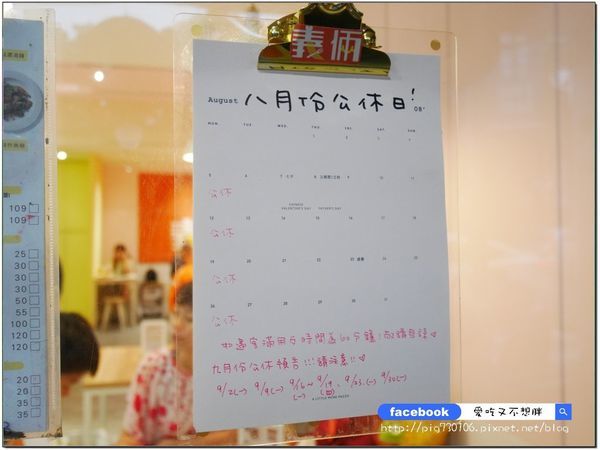 義倆
August 八月份公休日! 08'
MON. TUE. WED. THU. FRI. SAT. SUN.
1 2 3 4
5 6 7 七夕 8 父親節/立秋 9 10 11
公休
CHINESE VALENTINE'S DAY FATHER'S DAY
12 13 14 15 16 17 18
公休
19 20 21 22 23 處暑 24 25
公休
26 27 28 29 30 31
公休
如遇客滿用餐時間為60分鐘
九月份公休預告!!! 請注意!!♡
9/2(一) 9/9(一) 9/16~9/19 、9/23.(一) 9/30(一)
(一) (四)
109
109
25
30
30
50
50
120
120
20
20
35
facebook 愛吃又不想胖
http://pig730706.pixnet.net/blog